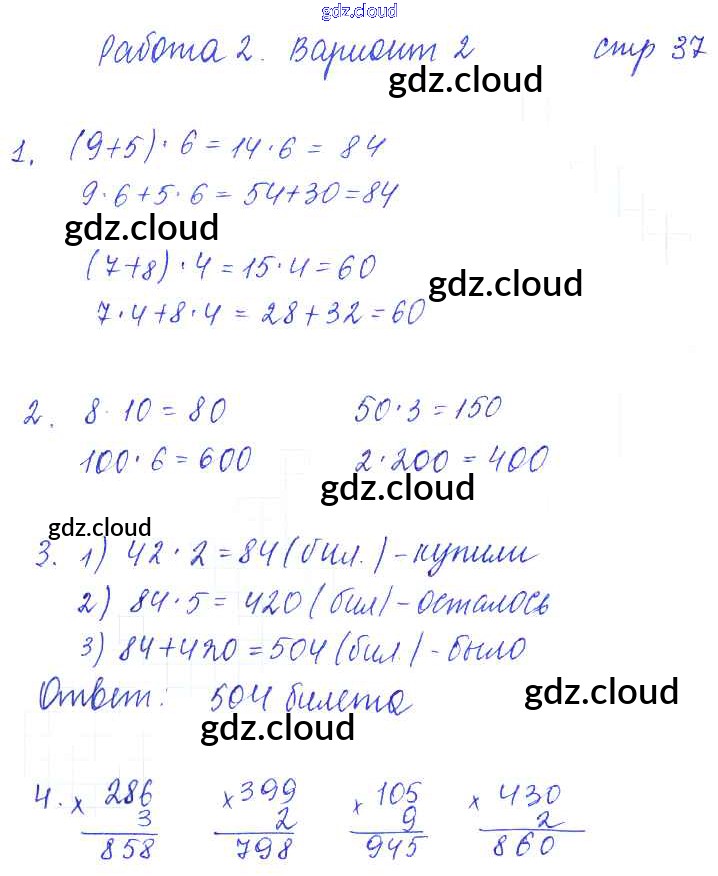 gdz.cloud
Работа 2. Вариант 2 стр 37
gdz.cloud
1. (9+5)·6=14·6=84
9·6+5·6=54+30=84
gdz.cloud
(7+8)·4=15·4=60
gdz.cloud
7·4+8·4=28+32=60
2. 8·10=80 50·3=150
100·6=600 2·200=400
gdz.cloud
gdz.cloud
3. 1) 42·2=84(бил.)-купили
2) 84·5=420(бил)-осталось
3) 84+420=504(бил.)-было
Ответ: 504 билета
gdz.cloud
gdz.cloud
4. × 286 × 399 × 105 × 430
3 2 9 2
858 798 945 860